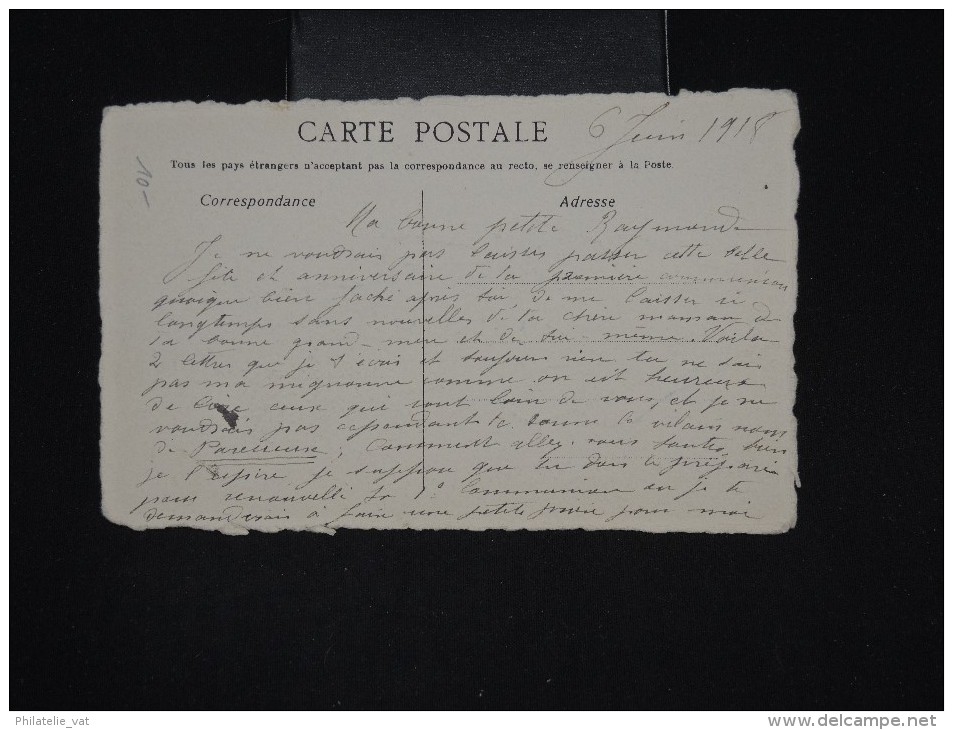 CARTE POSTALE 6 Juin 1918
Tous les pays étrangers n'acceptant pas la correspondance au recto, se renseigner à la Poste.
10-
Correspondance Adresse
Ma bonne petite Raymonde
Je ne voudrais pas laisser passer cette belle
fête et anniversaire de ta première communion
quoique bien faché après toi, de me laisser si
longtemps sans nouvelles de ta chère maman de
ta bonne grand-mère et de toi-même. Voila
2 lettres que je t'écris et toujours rien tu ne sais
pas ma mignonne comme on est heureux
de lire ceux qui sont loin de vous, et je ne
voudrais pas cependant te donner le vilain nom
de Paresseuse, Comment allez-vous toutes bien
je l'espère je suppose que tu dois te préparer
pour renouvelle ta 1e Communion ou je te
demanderais à faire une petite prière pour moi
Philatelie_vat
www.delcampe.net